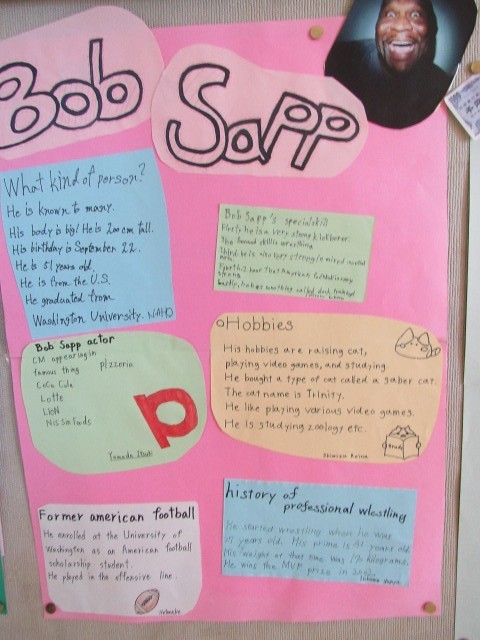 Bob
Sapp
What kind of person?
He is known to many.
His body is big! He is 200 cm tall.
His birthday is September 22.
He is 51 years old.
He is from the U.S.
He graduated from
Washington University. NAHO
Bob Sapp's specialskill
First, he is a very strong kickboxer.
The second skill is wrestling.
Third, he is also very strong in mixed martial
arts.
strong
Bob Sapp actor
CM appearing in
famous thing pizzeria
Coca Cola
Lotte
LION
Nissin foods
p
Yamada
Hobbies
His hobbies are raising cat,
playing video games, and studying.
He bought a type of cat called a saber cat.
The cat name is Trinity.
He like playing various video games.
He is studying zoology etc.
Study
Reina
Former american football
He enrolled at the University of
Washington as an American football
scholarship student.
He played in the offensive line.
history of
professional wlestling
He started wrestling when he was
years old. His prime is years old
His weight at that time was 170 kilograms.
He was the MVP prize in